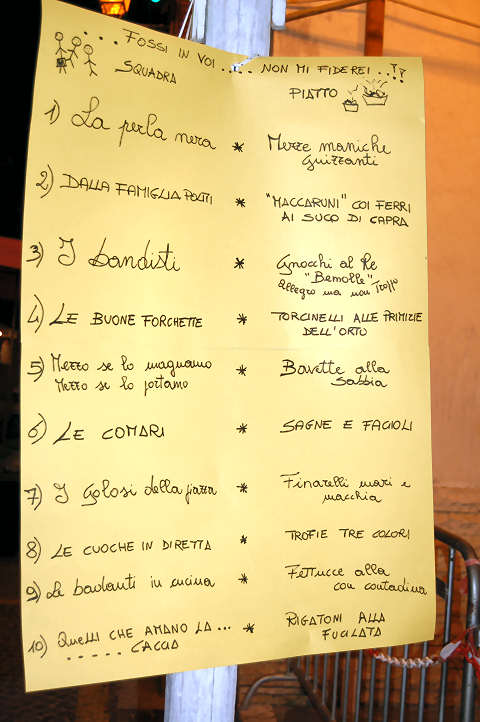 ... FOSSI IN VOI .... NON MI FIDEREI ..!?
SQUADRA PIATTO
1) La perla nera * Mezze maniche
Guizzanti
2) DALLA FAMIGLIA POLTI * "MACCARUNI" COI FERRI
AI SUGO DI CAPRA
3) I bandisti * Gnocchi al Re
"Bemolle"
Allegro ma non Troppo
4) LE BUONE FORCHETTE * TORCINELLI ALLE PRIMIZIE
DELL'ORTO
5) Mezzo se lo magnamo * Bavette alla
Mezzo se lo portamo Sabbia
6) LE COMARI * SAGNE E FAGIOLI
7) I Golosi della piazza * Finarelli mari e
macchia
8) LE CUOCHE IN DIRETTA * TROFIE TRE COLORI
9) Le badanti in cucina * Fettucce alla
con contadina
10) QUELLI CHE AMANO LA ... * RIGATONI ALLA
..... CACCIA FUCILATA